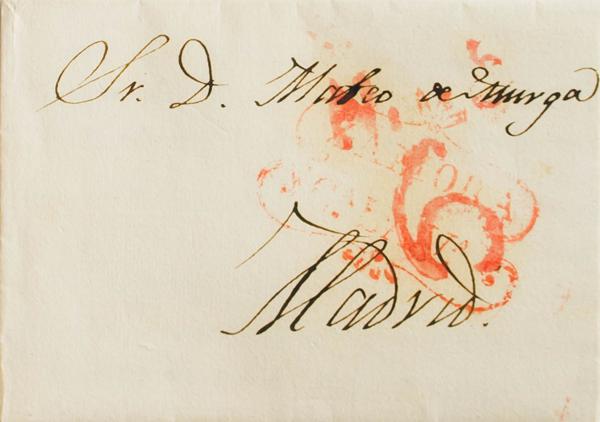 Sr. D. Mateo de Murga
Madrid.
6